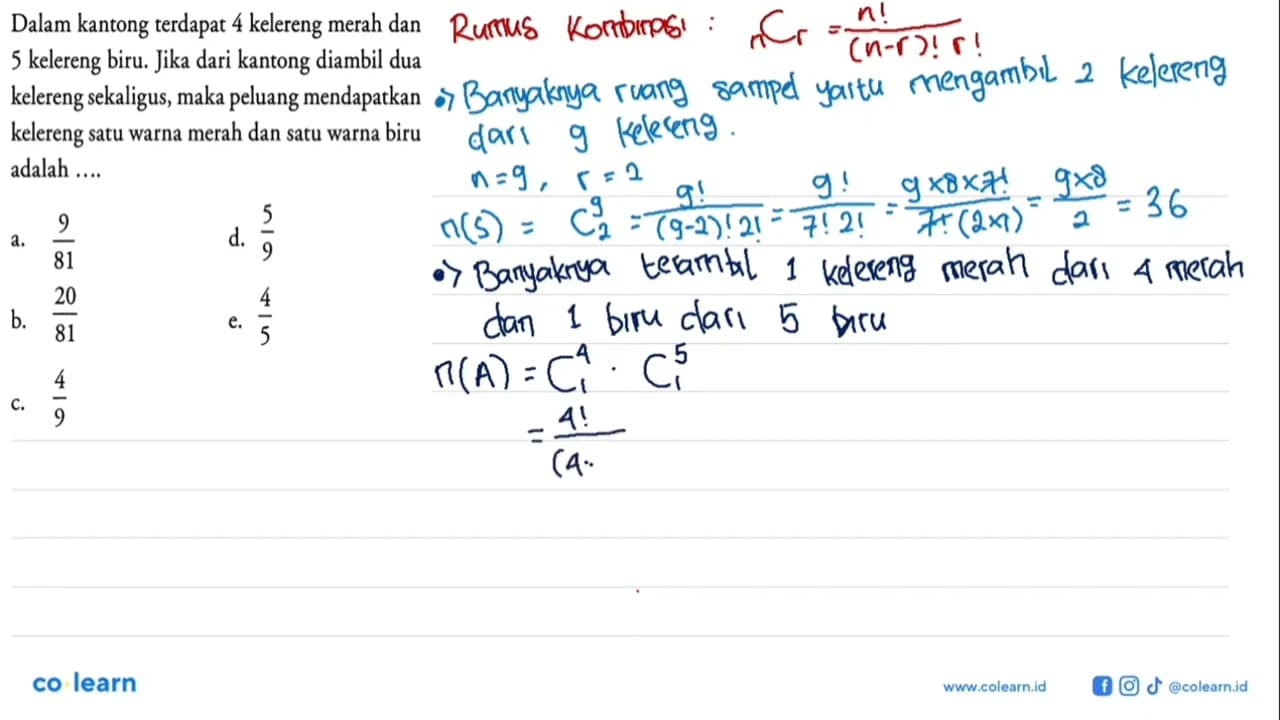 Dalam kantong terdapat 4 kelereng merah dan
5 kelereng biru. Jika dari kantong diambil dua
kelereng sekaligus, maka peluang mendapatkan
kelereng satu warna merah dan satu warna biru
adalah ....
a. 9/81
b. 20/81
c. 4/9
d. 5/9
e. 4/5
Rumus Kombinasi : nCr = n!/(n-r)! r!
•> Banyaknya ruang sampel yaitu mengambil 2 kelereng
dari 9 kelereng.
n=9, r=2
n(S) = C⁹₂ = 9!/(9-2)! 2! = 9!/7! 2! = 9×8×7!/7! (2×1) = 9×8/2 = 36
•> Banyaknya terambil 1 kelereng merah dari 4 merah
dan 1 biru dari 5 biru
n(A) = C⁴₁ · C⁵₁
= 4!/(4-
co learn
www.colearn.id
@colearn.id